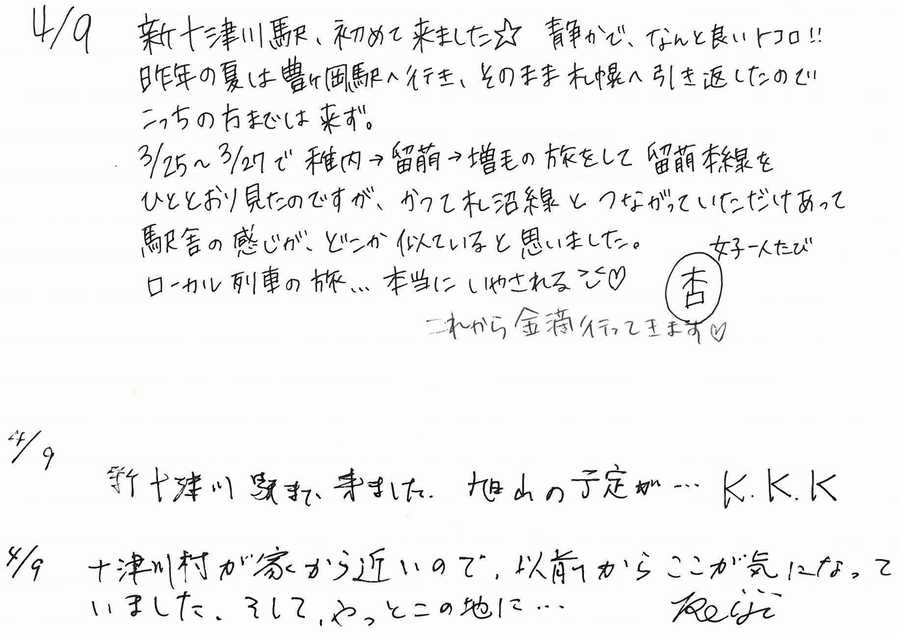 4/9 新十津川駅、初めて来ました☆ 静かで、なんと良いトコロ!!
昨年の夏は豊ヶ岡駅へ行き、そのまま札幌へ引き返したので
こっちの方までは来ず。
3/25〜3/27で 稚内→留萌→増毛の旅をして 留萌本線を
ひととおり見たのですが、かつて札沼線とつながっていただけあって
駅舎の感じが、どこか似ていると思いました。
女子一人たび
ローカル列車の旅… 本当にいやされる♡
杏
これから金滴行ってきます♡
4/9
新十津川駅まで、来ました. 旭山の予定が… K.K.K
4/9 十津川村が家から近いので、以前からここが気になって
いました。そして、やっとこの地に… Keiji